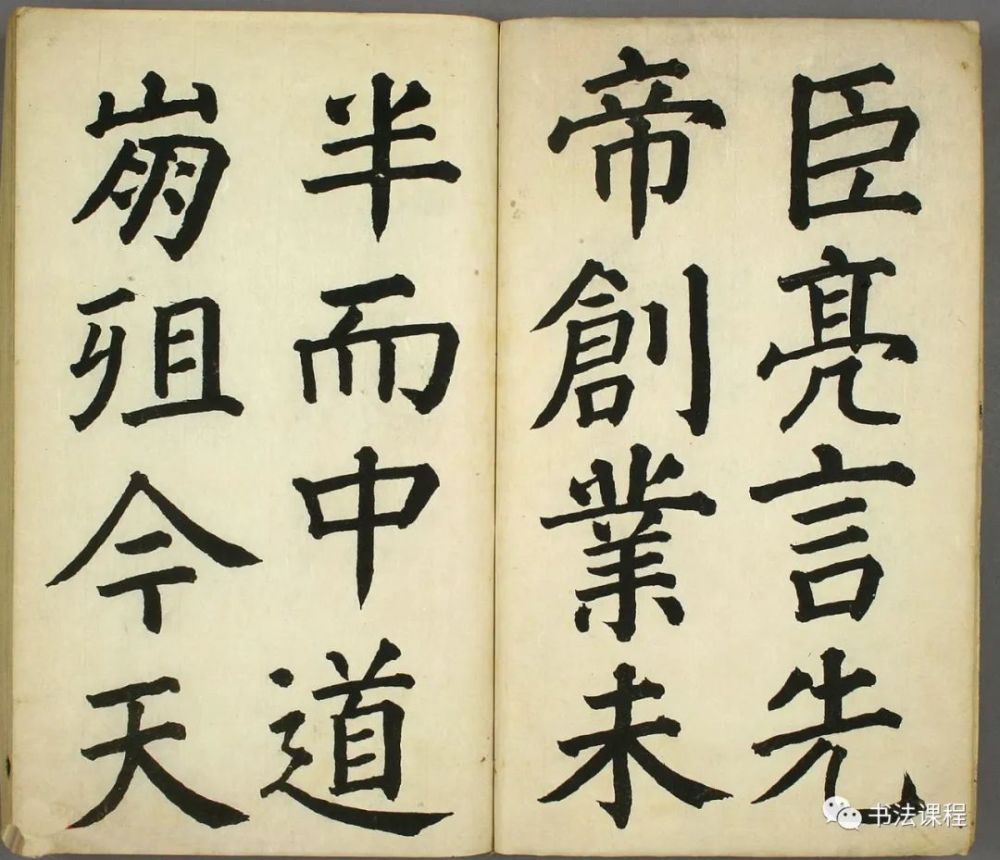 臣亮言先
帝創業未
半而中道
崩殂今天
书法课程